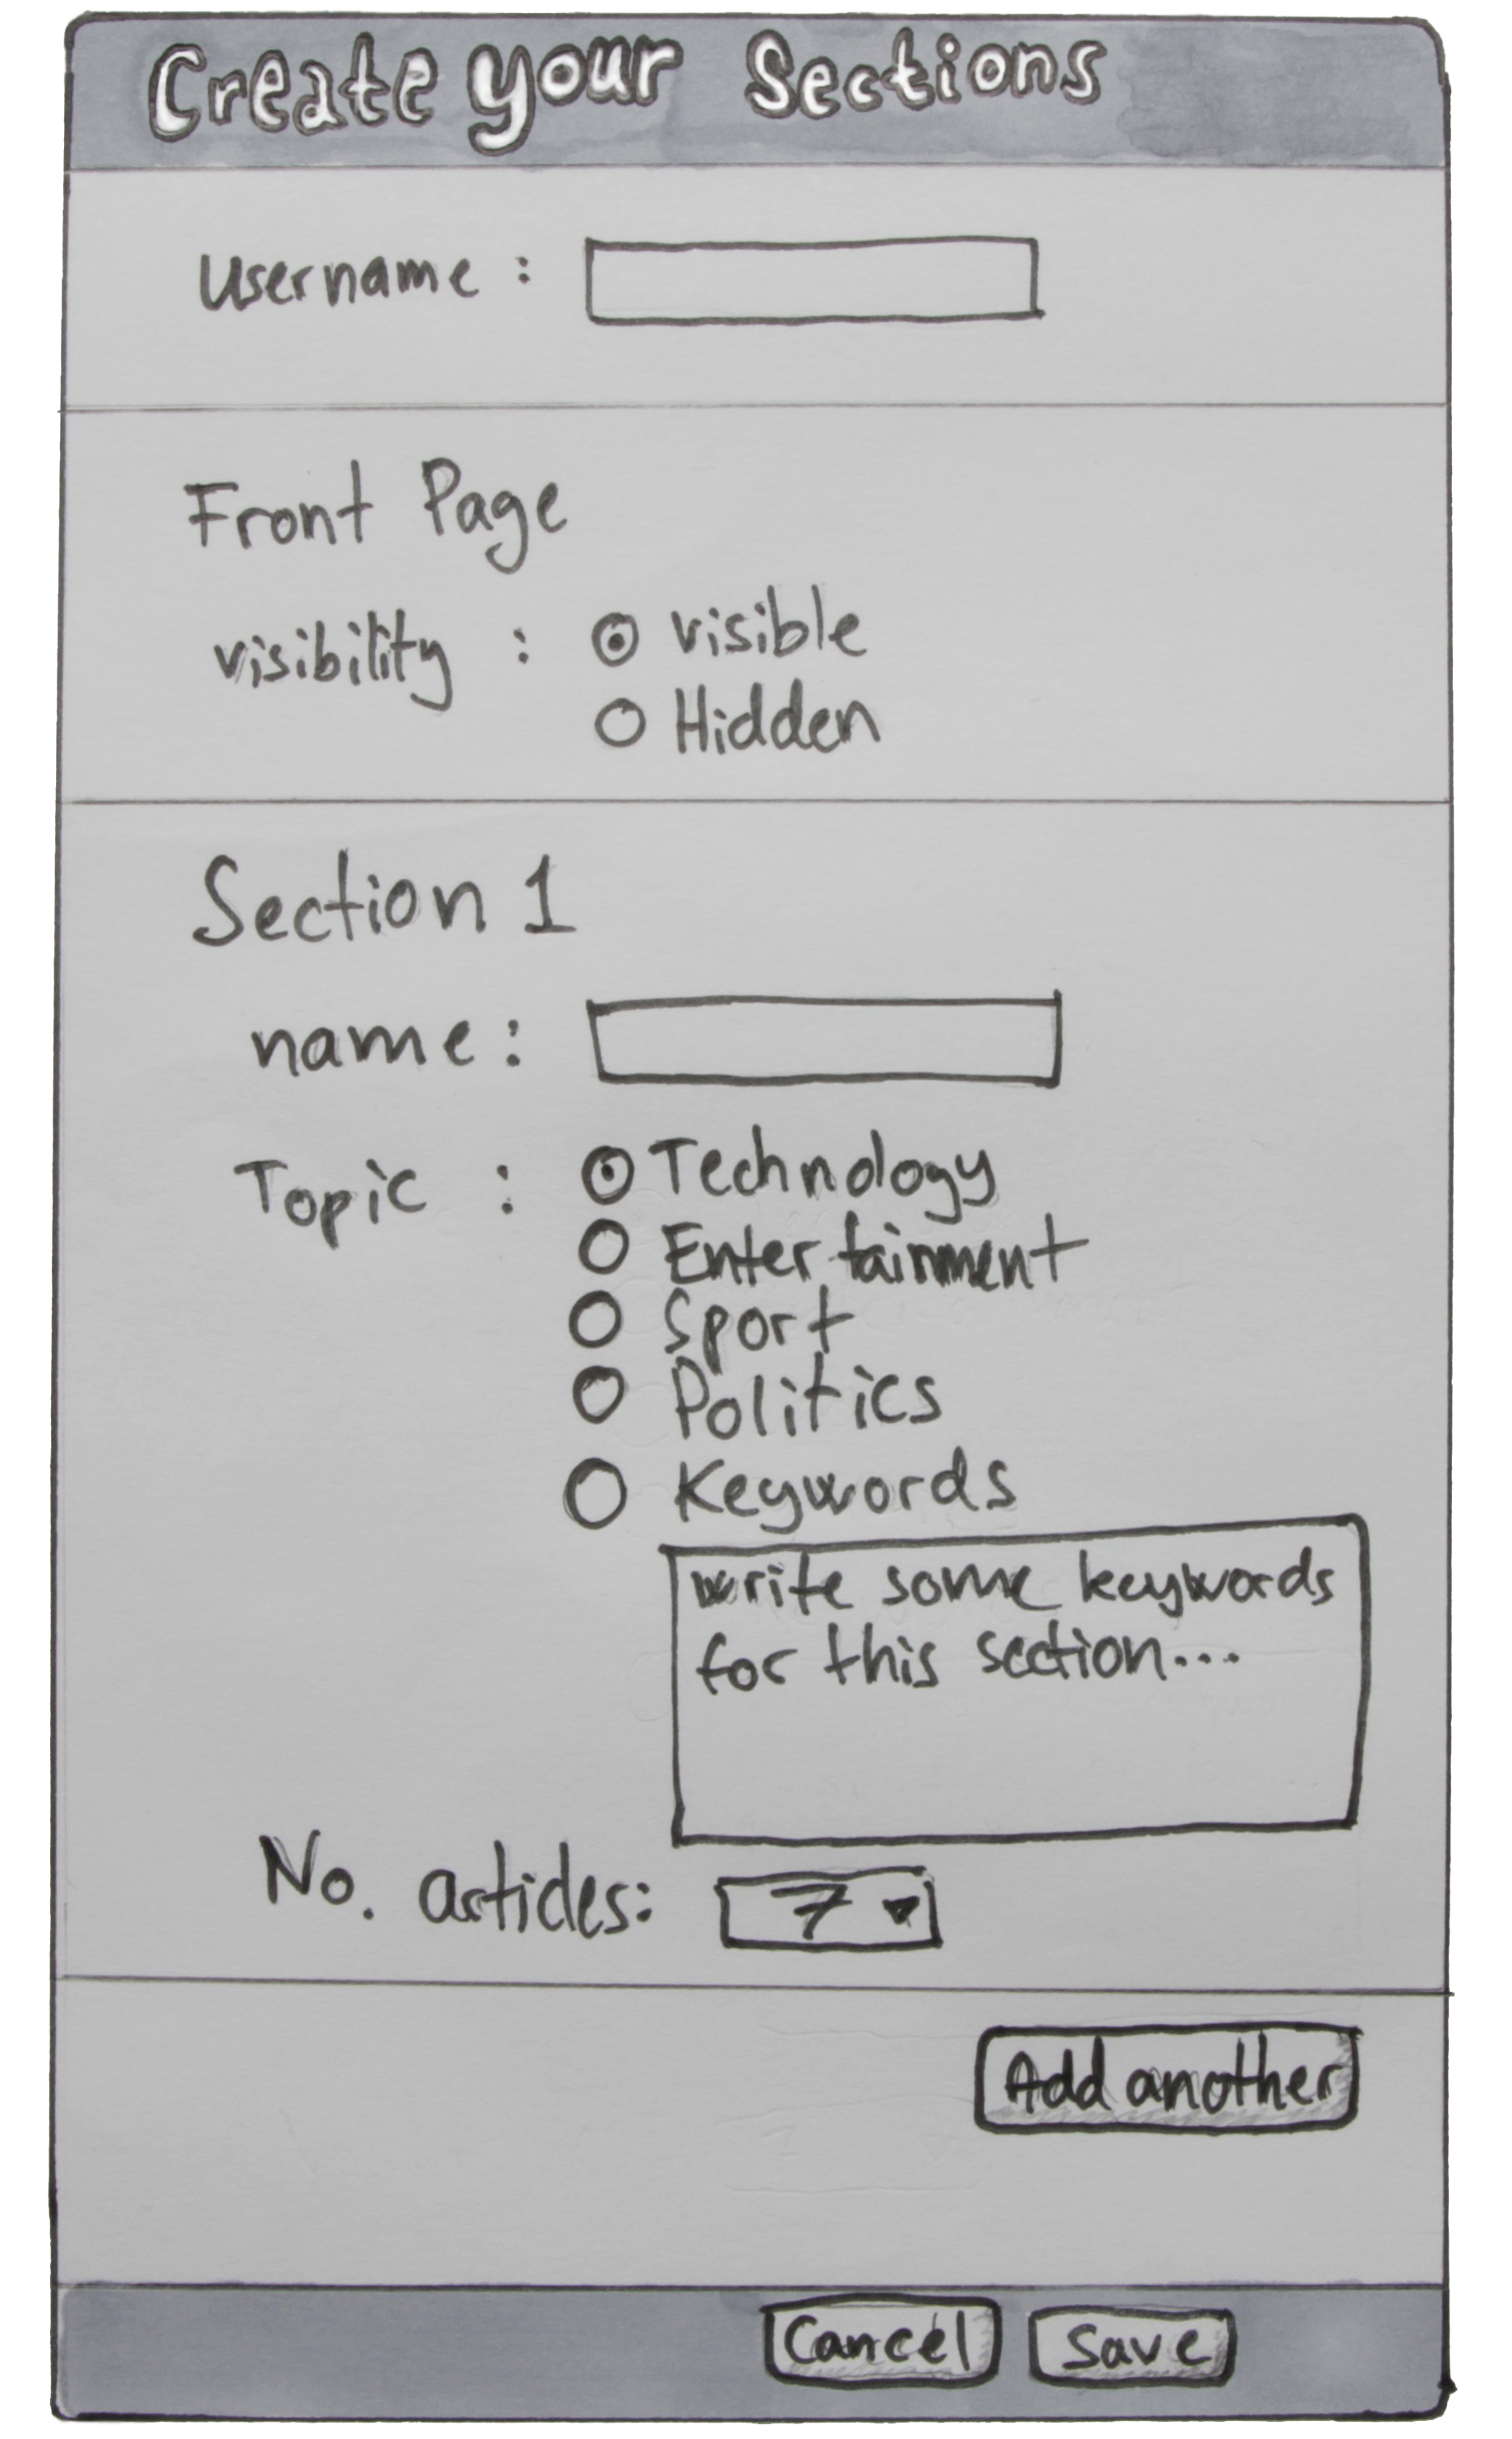 Create your Sections
Username :
Front Page
visibility : visible
Hidden
Section 1
name :
Topic : Technology
Entertainment
Sport
Politics
Keywords
write some keywords
for this section...
No. articles: 7
Add another
Cancel Save